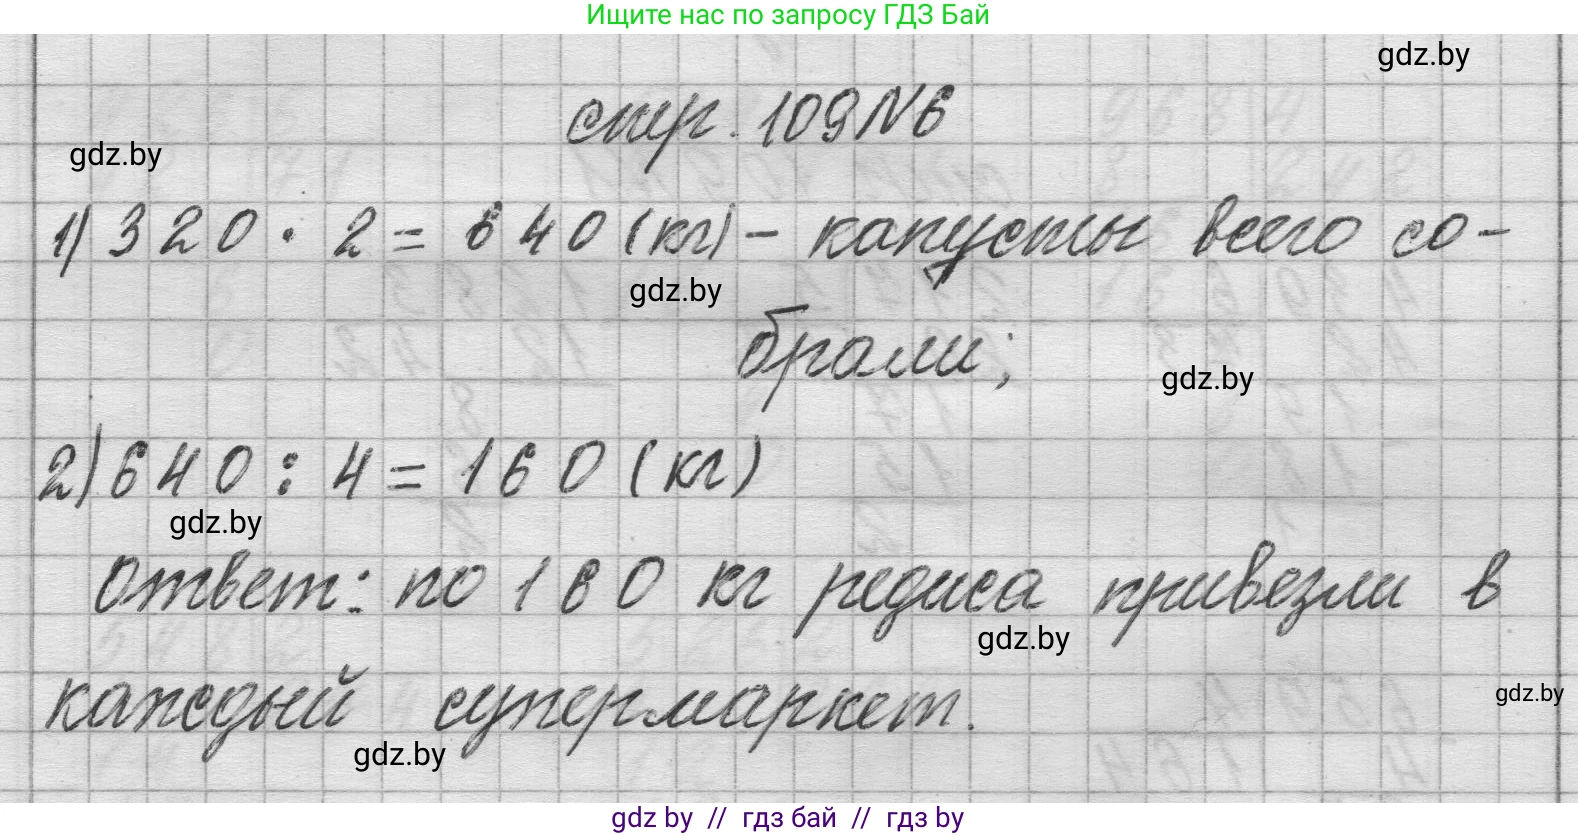 Ищите нас по запросу ГДЗ Бай
gdz.by
стр. 109 N6
gdz.by
1) 320 · 2 = 640 (кг) - капусты всего со-
gdz.by
брали;
gdz.by
2) 640 : 4 = 160 (кг)
gdz.by
Ответ: по 160 кг редиса привезли в
gdz.by
каждый супермаркет.
gdz.by
gdz.by
gdz by // гдз бай // gdz by